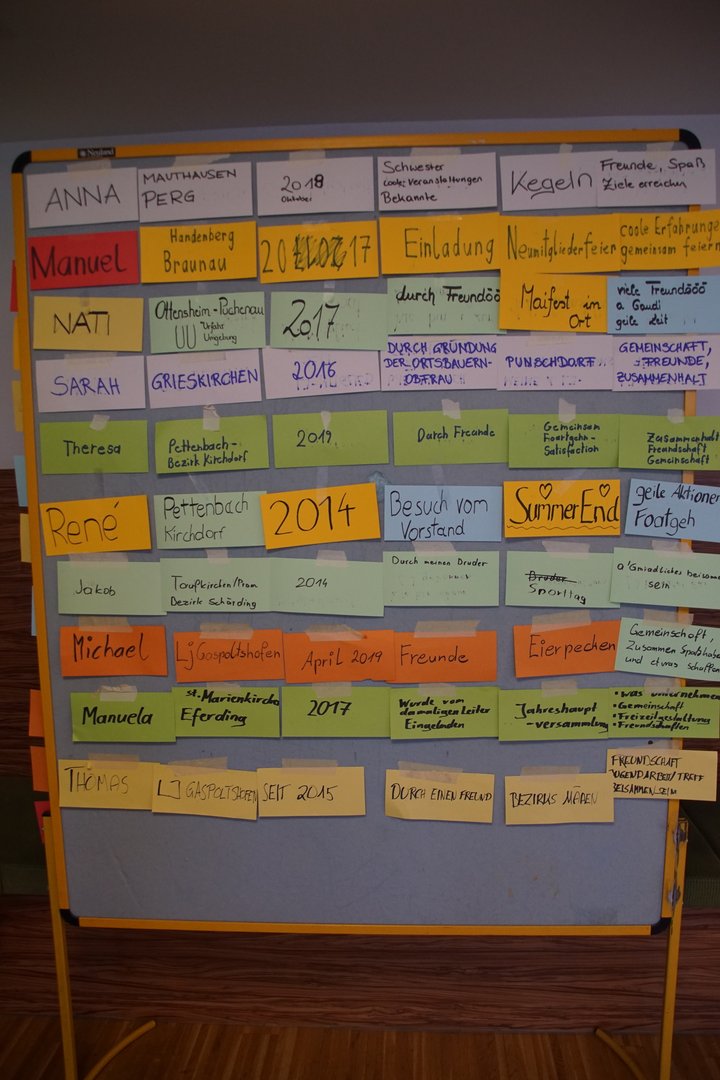 Neuland
ANNA
MAUTHAUSEN
PERG
2018
Oktober
Schwester
coole Veranstaltungen
Bekannte
Kegeln
Freunde, Spaß
Ziele erreichen
Manuel
Handenberg
Braunau
20 17
Einladung
Neumitgliederfeier
coole Erfahrunge
gemeinsam feiern
NATI
Ottensheim-Puchenau
UU Urfahr
Umgebung
2017
durch Freundöö
Maifest im
Ort
viele Freundööö
a Gaudi
geile Zeit
SARAH
GRIESKIRCHEN
2016
DURCH GRÜNDUNG
DER ORTSBAUERN-
ÖBFRAU
PUNSCHDORF
GEMEINSCHAFT,
FREUNDE,
ZUSAMMENHALT
Theresa
Pettenbach-
Bezirk Kirchdorf
2019
Durch Freunde
Gemeinsam
Foartgehn-
Satisfaction
Zusammenhalt
Freundschaft
Gemeinschaft
René
Pettenbach
Kirchdorf
2014
Besuch vom
Vorstand
SummerEnd
geile Aktionen
Foatgeh
Jakob
Taufkirchen/Pram
Bezirk Schärding
2014
Durch meinen Bruder
Bruder
Sporttag
a'Gmiadliches beisomm
sein
Michael
Lj Gaspoltshofen
April 2019
Freunde
Eierpecken
Gemeinschaft,
Zusammen Spaß habe
und etwas schaffen
Manuela
St. Marienkirche
Eferding
2017
Wurde vom
damaligen Leiter
Eingelanden
Jahreshaupt
-versammlung
• Was unternehmen
• Gemeinschaft
• Freizeitgestaltung
• Freundschaften
THOMAS
LJ GASPOLTSHOFEN
SEIT 2015
DURCH EINEN FREUND
BEZIRKS MÄHEN
FREUNDSCHAFT
JUGENDARBEIT/TREFF
BEISAMMEN SEIN